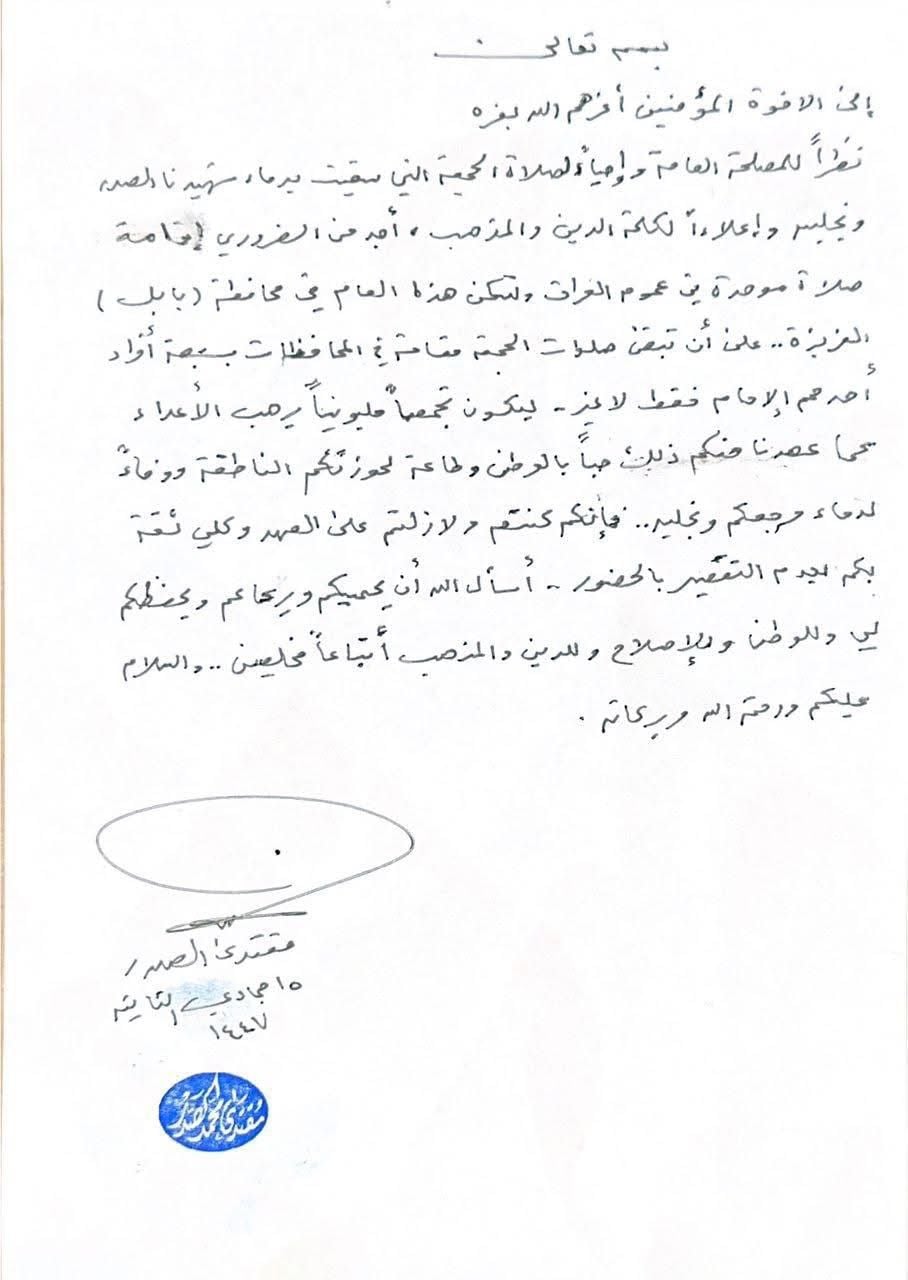 بسمه تعالى
إلى الاخوة المؤمنين أعزهم الله بعزه
نظراً للمصلحة العامة وإحياءً لصلاة الجمعة التي سقيت بدماء شهيدنا الصدر
ونجليه وإعلاءاً لكلمة الدين والمذهب، أجد من الضروري إقامة
صلاة موحدة في عموم العراق ولتكن هذا العام في محافظة (بابل)
العزيزة.. على أن تبقى صلوات الجمعة مقامة في المحافظات بسبعة أفراد
أحدهم الإمام فقط لا غير.. ليكون تجمعاً مليونياً يرهب الأعداء
كما عهدنا منكم ذلك حباً بالوطن وطاعة لحوزتكم الناطقة ووفاءً
لدماء مرجعكم ونجليه.. فإنكم كنتم ولازلتم على العهد وكلي ثقة
بكم لعدم التقصير بالحضور.. أسأل الله أن يحميكم ويرعاكم ويحفظكم
لي وللوطن وللإصلاح وللدين والمذهب أتباعاً مخلصين.. والسلام
عليكم ورحمة الله وبركاته.
مقتدى الصدر
١٥ جمادي الثانية
١٤٤٧
مقتدى محمد الصدر